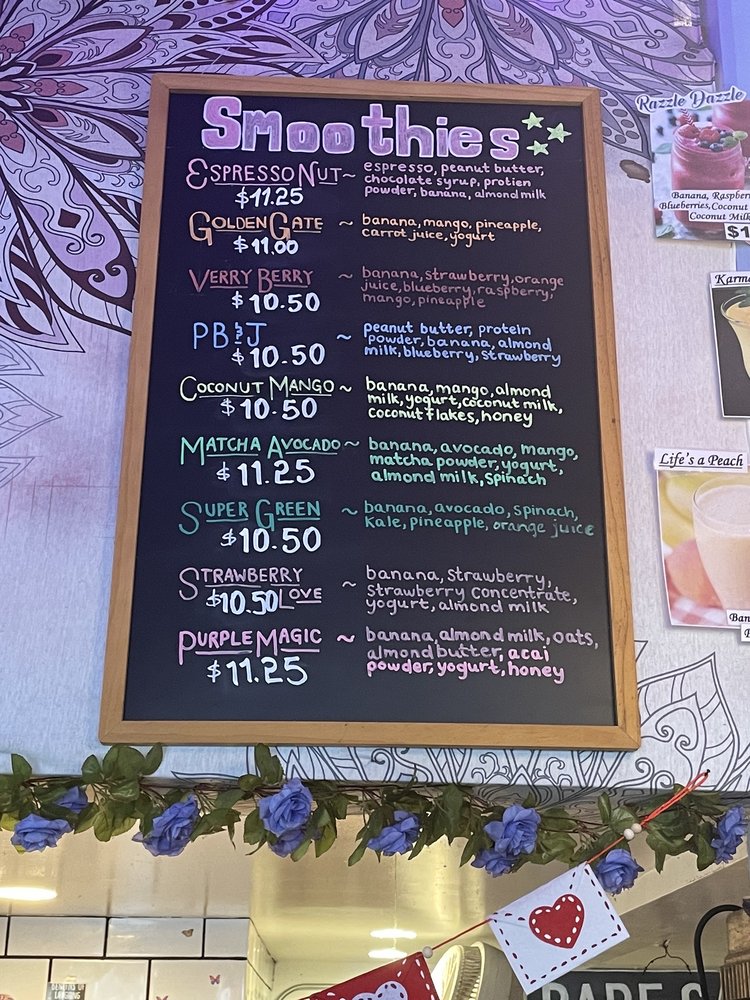 Smoothies
ESPRESSO NUT ~ espresso, peanut butter,
chocolate syrup, protien
powder, banana, almond milk
$11.25
GOLDEN GATE ~ banana, mango, pineapple,
carrot juice, yogurt
$11.00
VERRY BERRY ~ banana, strawberry, orange
juice, blueberry, raspberry,
mango, pineapple
$10.50
PB&J ~ peanut butter, protein
powder, banana, almond
milk, blueberry, strawberry
$10.50
COCONUT MANGO ~ banana, mango, almond
milk, yogurt, coconut milk,
coconut flakes, honey
$10.50
MATCHA AVOCADO ~ banana, avocado, mango,
matcha powder, yogurt,
almond milk, spinach
$11.25
SUPER GREEN ~ banana, avocado, spinach,
kale, pineapple, orange juice
$10.50
STRAWBERRY LOVE ~ banana, strawberry,
strawberry concentrate,
yogurt, almond milk
$10.50
PURPLE MAGIC ~ banana, almond milk, oats,
almond butter, acai
powder, yogurt, honey
$11.25
Razzle Dazzle
Banana, Raspb
Blueberries, Coconut
Coconut Milk
$1
Karma
Life's a Peach
Ban
BENEFITS OF